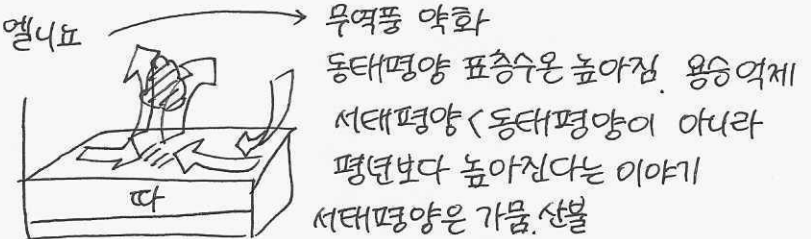 엘니뇨
무역풍 약화
동태평양 표층수온 높아짐. 용승억제
서태평양<동태평양이 아니라
평년보다 높아진다는 이야기
서태평양은 가뭄. 산불
따